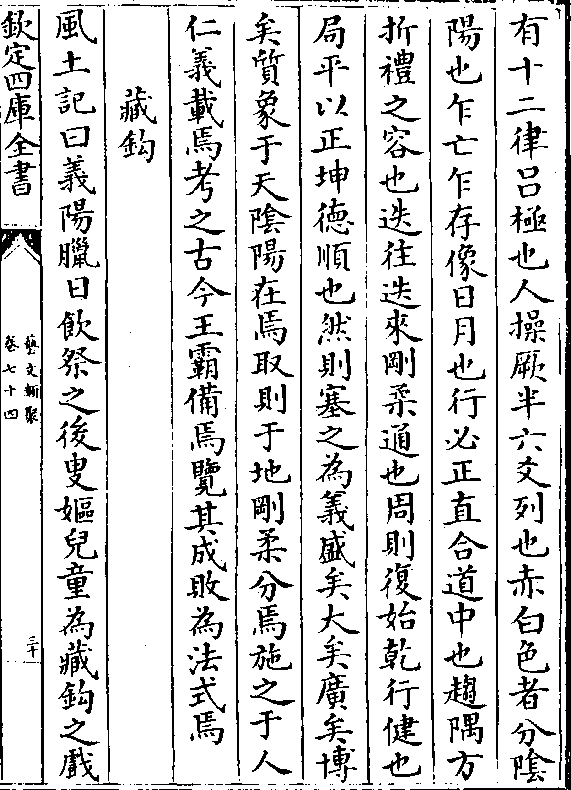 有十二律吕極也人操厥半六爻列也赤白色者分陰
陽也乍亡乍存像日月也行必正直合道中也趨隅方
折禮之容也迭往迭來剛柔通也周則復始乾行健也
局平以正坤德順也然則塞之為義盛矣大矣廣矣博
矣質象于天陰陽在焉取則于地剛柔分焉施之于人
仁義載焉考之古今王霸備焉覽其成敗為法式焉
藏鈎
風土記曰義陽臘日飲祭之後叟嫗兒童為藏鈎之戲
欽定四庫全書
藝文類聚
卷七十四
三十